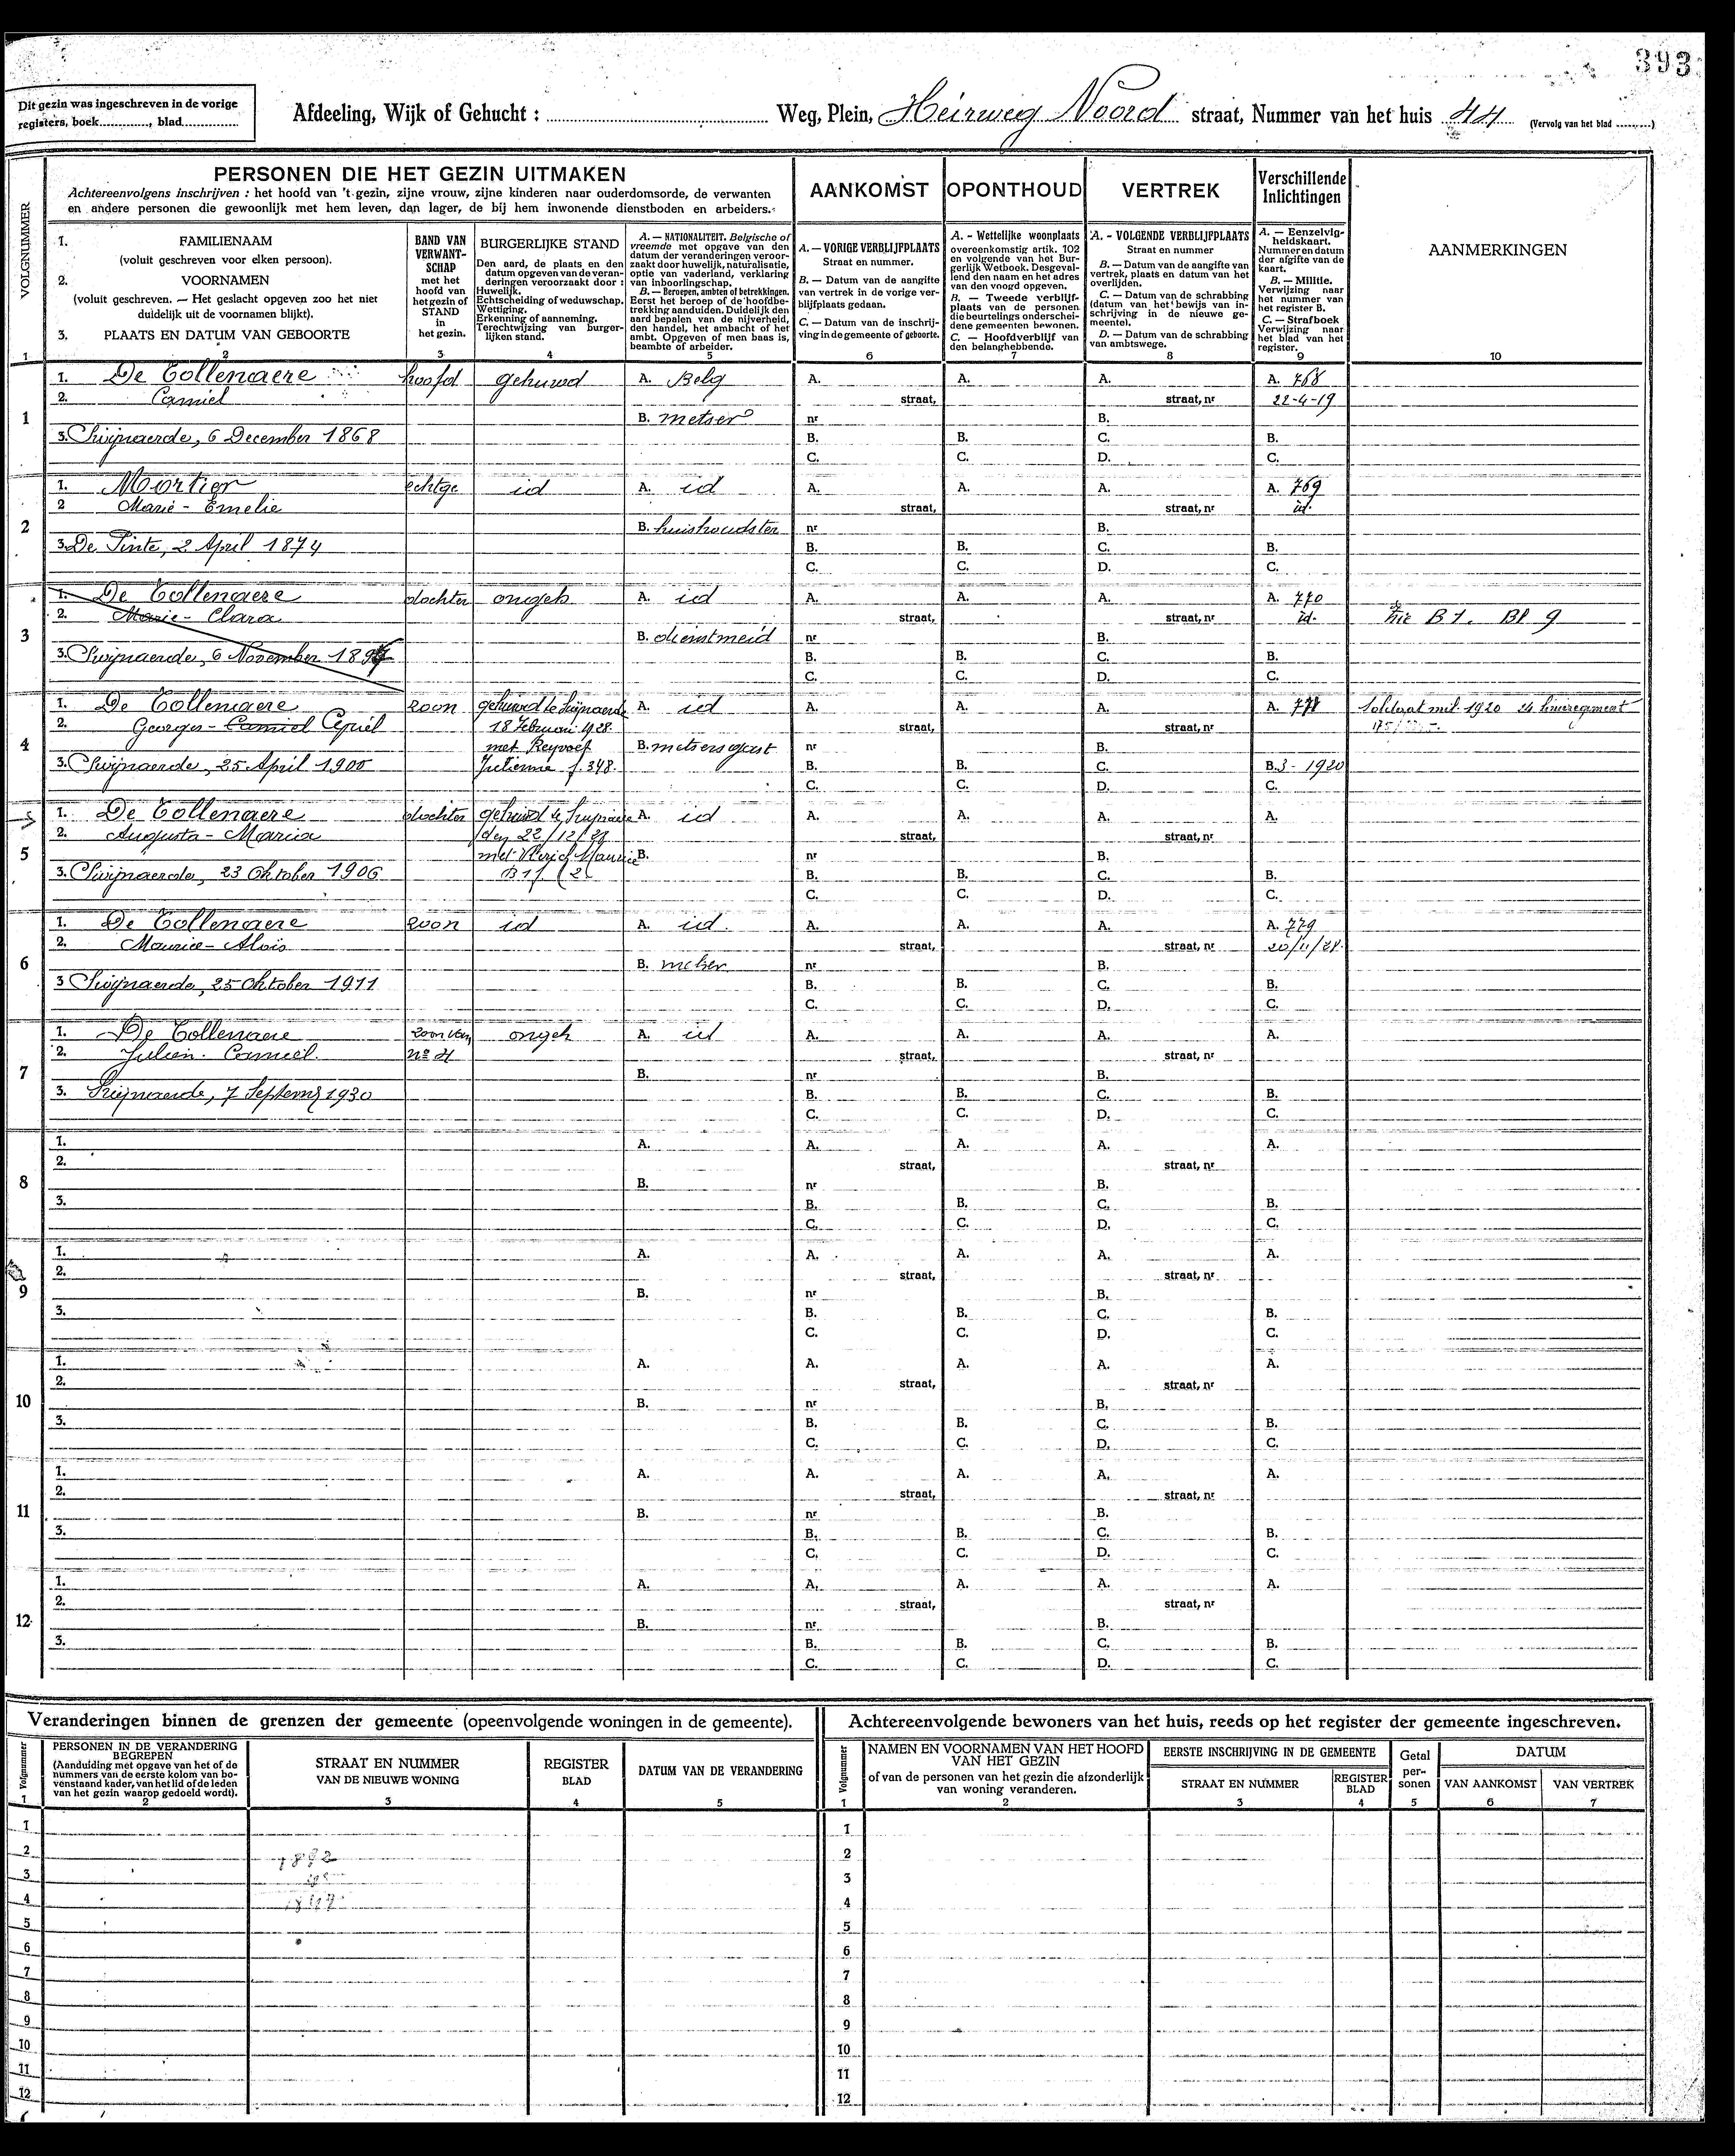 393
Dit gezin was ingeschreven in de vorige
registers, boek............, blad..............
Afdeeling, Wijk of Gehucht : ........................ Weg, Plein, Heirweg Noord straat, Nummer van het huis 44 (Vervolg van het blad .........)
PERSONEN DIE HET GEZIN UITMAKEN
Achtereenvolgens inschrijven : het hoofd van 't gezin, zijne vrouw, zijne kinderen naar ouderdomsorde, de verwanten
en andere personen die gewoonlijk met hem leven, dan lager, de bij hem inwonende dienstboden en arbeiders.
AANKOMST
OPONTHOUD
VERTREK
Verschillende
Inlichtingen
AANMERKINGEN
VOLGNUMMER
1. FAMILIENAAM
(voluit geschreven voor elken persoon).
2. VOORNAMEN
(voluit geschreven. — Het geslacht opgeven zoo het niet
duidelijk uit de voornamen blijkt).
3. PLAATS EN DATUM VAN GEBOORTE
BAND VAN
VERWANT-
SCHAP
met het
hoofd van
het gezin of
STAND
in
het gezin.
BURGERLIJKE STAND
Den aard, de plaats en den
datum opgeven van de veran-
deringen veroorzaakt door :
Huwelijk.
Echtscheiding of weduwschap.
Wettiging.
Erkenning of aanneming.
Terechtwijzing van burger-
lijken stand.
A. — NATIONALITEIT. Belgische of
vreemde met opgave van den
datum der veranderingen veroor-
zaakt door huwelijk, naturalisatie,
optie van vaderland, verklaring
van inboorlingschap.
B. — Beroepen, ambten of betrekkingen.
Eerst het beroep of de hoofdbe-
trekking aanduiden. Duidelijk den
aard bepalen van de nijverheid,
den handel, het ambacht of het
ambt. Opgeven of men baas is,
beambte of arbeider.
A. — VORIGE VERBLIJFPLAATS
Straat en nummer.
B. — Datum van de aangifte
van vertrek in de vorige ver-
blijfplaats gedaan.
C. — Datum van de inschrij-
ving in de gemeente of geboorte.
A. - Wettelijke woonplaats
overeenkomstig artik. 102
en volgende van het Bur-
gerlijk Wetboek. Desgeval-
lend den naam en het adres
van den voogd opgeven.
B. — Tweede verblijf-
plaats van de personen
die beurtelings onderschei-
dene gemeenten bewonen.
C. — Hoofdverblijf van
den belanghebbende.
A. - VOLGENDE VERBLIJFPLAATS
Straat en nummer
B. — Datum van de aangifte van
vertrek, plaats en datum van het
overlijden.
C. — Datum van de schrabbing
(datum van het bewijs van in-
schrijving in de nieuwe ge-
meente).
D. — Datum van de schrabbing
van ambtswege.
A. — Eenzelvig-
heidskaart.
Nummer en datum
der afgifte van de
kaart.
B. — Militie.
Verwijzing naar
het nummer van
het register B.
C. — Strafboek
Verwijzing naar
het blad van het
register.
1 2 3 4 5 6 7 8 9 10
1. De Tollenaere hoofd gehuwd A. Belg A. A. A. A. 768
2. Camiel straat, straat, nr 22-4-19
1 B. metser nr B.
3. Swijnaerde, 6 December 1868 B. B. C. B.
C. C. D. C.
1. Mortier echtge id A. id A. A. A. A. 769
2 Marie - Emelie straat, straat, nr id.
2 B. huishoudster nr B.
3. De Pinte, 2 April 1874 B. B. C. B.
C. C. D. C.
1. De Tollenaere dochter ongeh A. id A. A. A. A. 770
2. Marie - Clara straat, straat, nr id. zie B 1. Bl 9
3 B. dienstmeid nr B.
3. Swijnaerde, 6 November 189 B. B. C. B.
C. C. D. C.
1. De Tollenaere zoon gehuwd te Swijnaerde A. id A. A. A. A. 771 Soldaat mil. 1920
2. Georges - Camiel Cyriel 18 Februari 1928 straat, straat, nr
4 met Reyvaet B. metsersgast nr B.
3. Swijnaerde, 25 April 1900 Julienne f. 348. B. B. C. B. 3 - 1920
C. C. D. C.
1. De Tollenaere dochter gehuwd te Swijnaerde A. id A. A. A. A.
2. Augusta - Maria den 22/12/29 straat, straat, nr
5 met Maurice B. nr B.
3. Swijnaerde, 23 Oktober 1906 B. B. C. B.
C. C. D. C.
1. De Tollenaere zoon id A. id. A. A. A. A. 779
2. Maurice - Aloïs straat, straat, nr 20/11/28.
6 B. metser nr B.
3 Swijnaerde, 25 Oktober 1911 B. B. C. B.
C. C. D. C.
1. De Tollenaere zoon van ongeh A. id A. A. A. A.
2. Julien. Camiel. nº 4 straat, straat, nr
7 B. nr B.
3. Swijnaerde, 7 Septemb 1930 B. B. C. B.
C. C. D. C.
1. A. A. A. A. A.
2. straat, straat, nr
8 B. nr B.
3. B. B. C. B.
C. C. D. C.
1. A. A. A. A. A.
2. straat, straat, nr
9 B. nr B.
3. B. B. C. B.
C. C. D. C.
1. A. A. A. A. A.
2. straat, straat, nr
10 B. nr B.
3. B. B. C. B.
C. C. D. C.
1. A. A. A. A. A.
2. straat, straat, nr
11 B. nr B.
3. B. B. C. B.
C. C. D. C.
1. A. A. A. A. A.
2. straat, straat, nr
12 B. nr B.
3. B. B. C. B.
C. C. D. C.
Veranderingen binnen de grenzen der gemeente (opeenvolgende woningen in de gemeente).
Volgnummer
PERSONEN IN DE VERANDERING
BEGREPEN
(Aanduiding met opgave van het of de
nummers van de eerste kolom van bo-
venstaand kader, van het lid of de leden
van het gezin waarop gedoeld wordt).
STRAAT EN NUMMER
VAN DE NIEUWE WONING
REGISTER
BLAD
DATUM VAN DE VERANDERING
1 2 3 4 5
1
2 1892
3
4
5
6
7
8
9
10
11
12
Achtereenvolgende bewoners van het huis, reeds op het register der gemeente ingeschreven.
Volgnummer
NAMEN EN VOORNAMEN VAN HET HOOFD
VAN HET GEZIN
of van de personen van het gezin die afzonderlijk
van woning veranderen.
EERSTE INSCHRIJVING IN DE GEMEENTE
STRAAT EN NUMMER
REGISTER
BLAD
Getal
per-
sonen
DATUM
VAN AANKOMST
VAN VERTREK
1 2 3 4 5 6 7
1
2
3
4
5
6
7
8
9
10
11
12